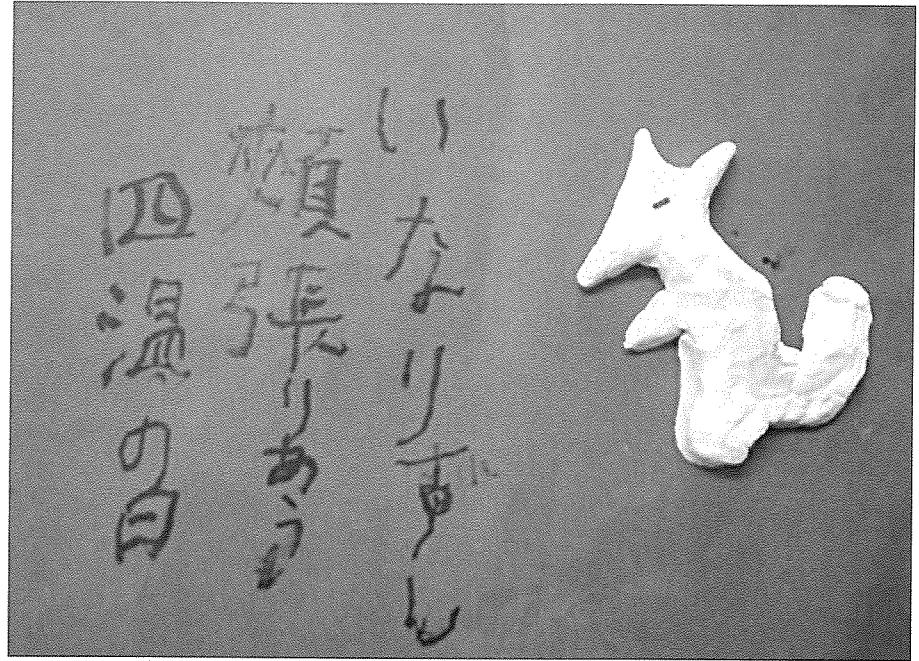 いなりずし
頬張りあうも
四温の日